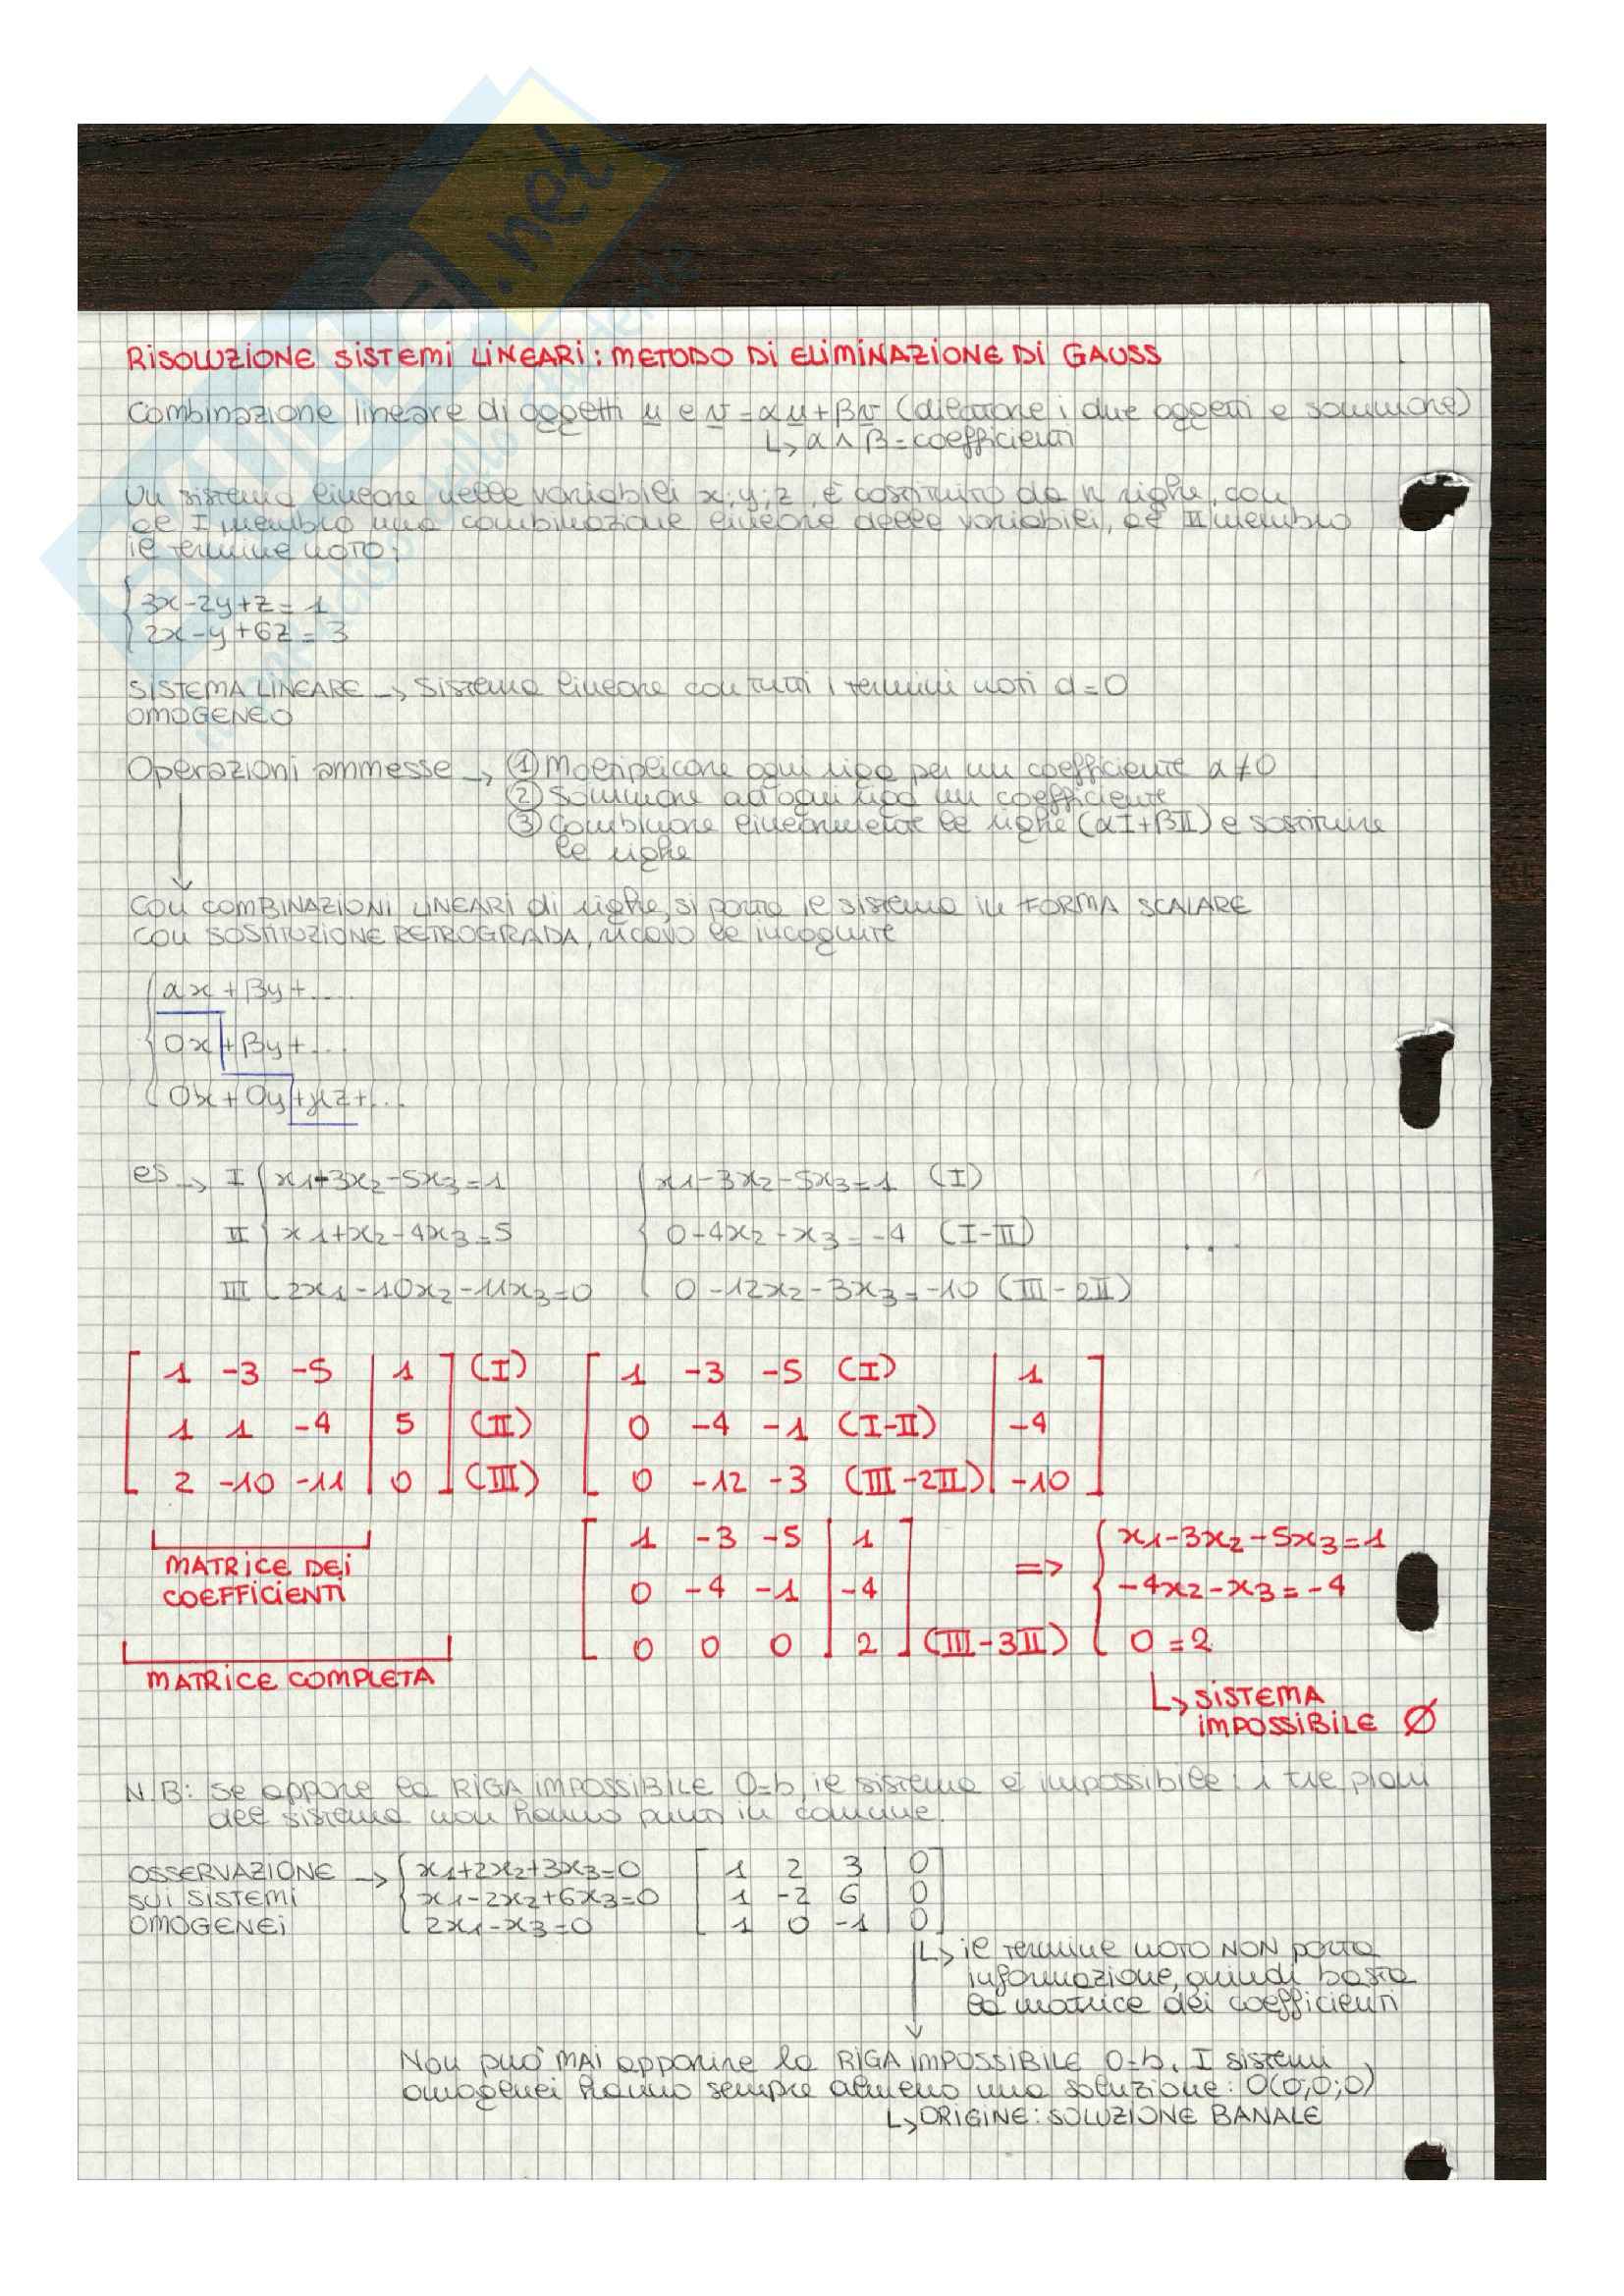 RISOLUZIONE SISTEMI LINEARI: METODO DI ELIMINAZIONE DI GAUSS
Combinazione lineare di oggetti u e v = αu+βv (dilatare i due oggetti e sommare)
↳ α ∧ β = coefficienti
Un sistema lineare nelle variabili x; y; z, è costituito da n righe, con
al I membro una combinazione lineare delle variabili, al II membro
il termine noto:
3x-2y+z=1
2x-y+6z=3
SISTEMA LINEARE → Sistema lineare con tutti i termini noti a=0
OMOGENEO
Operazioni ammesse → ① Moltiplicare ogni riga per un coefficiente α≠0
② Sommare ad ogni riga un coefficiente
③ Combinare linearmente le righe (αI+βII) e sostituire
le righe
Con COMBINAZIONI LINEARI di righe, si porta il sistema in FORMA SCALARE
Con SOSTITUZIONE RETROGRADA, ricavo le incognite
αx+βy+...
0x+βy+...
0x+0y+γz+...
es → I x1+3x2-5x3=1 x1-3x2-5x3=1 (I)
II x1+x2-4x3=5 0-4x2-x3=-4 (I-II)
III 2x1-10x2-11x3=0 0-12x2-3x3=-10 (III-2II)
1 -3 -5 | 1 (I) 1 -3 -5 (I) | 1
1 1 -4 | 5 (II) 0 -4 -1 (I-II) | -4
2 -10 -11 | 0 (III) 0 -12 -3 (III-2II) | -10
1 -3 -5 | 1 x1-3x2-5x3=1
MATRICE DEI => 
COEFFICIENTI 0 -4 -1 | -4 -4x2-x3=-4
0 0 0 | 2 (III-3II) 0=2
MATRICE COMPLETA
↳ SISTEMA
IMPOSSIBILE ∅
N.B: Se appare la RIGA IMPOSSIBILE 0=b, il sistema è impossibile: i tre piani
del sistema non hanno punti in comune.
OSSERVAZIONE → x1+2x2+3x3=0 1 2 3 | 0
SUI SISTEMI x1-2x2+6x3=0 1 -2 6 | 0
OMOGENEI 2x1-x3=0 1 0 -1 | 0
↳ il termine noto NON porta
informazione, quindi basta
la matrice dei coefficienti
Non può MAI apparire la RIGA IMPOSSIBILE 0=b. I sistemi
omogenei hanno sempre almeno una soluzione: O(0;0;0)
↳ ORIGINE: SOLUZIONE BANALE